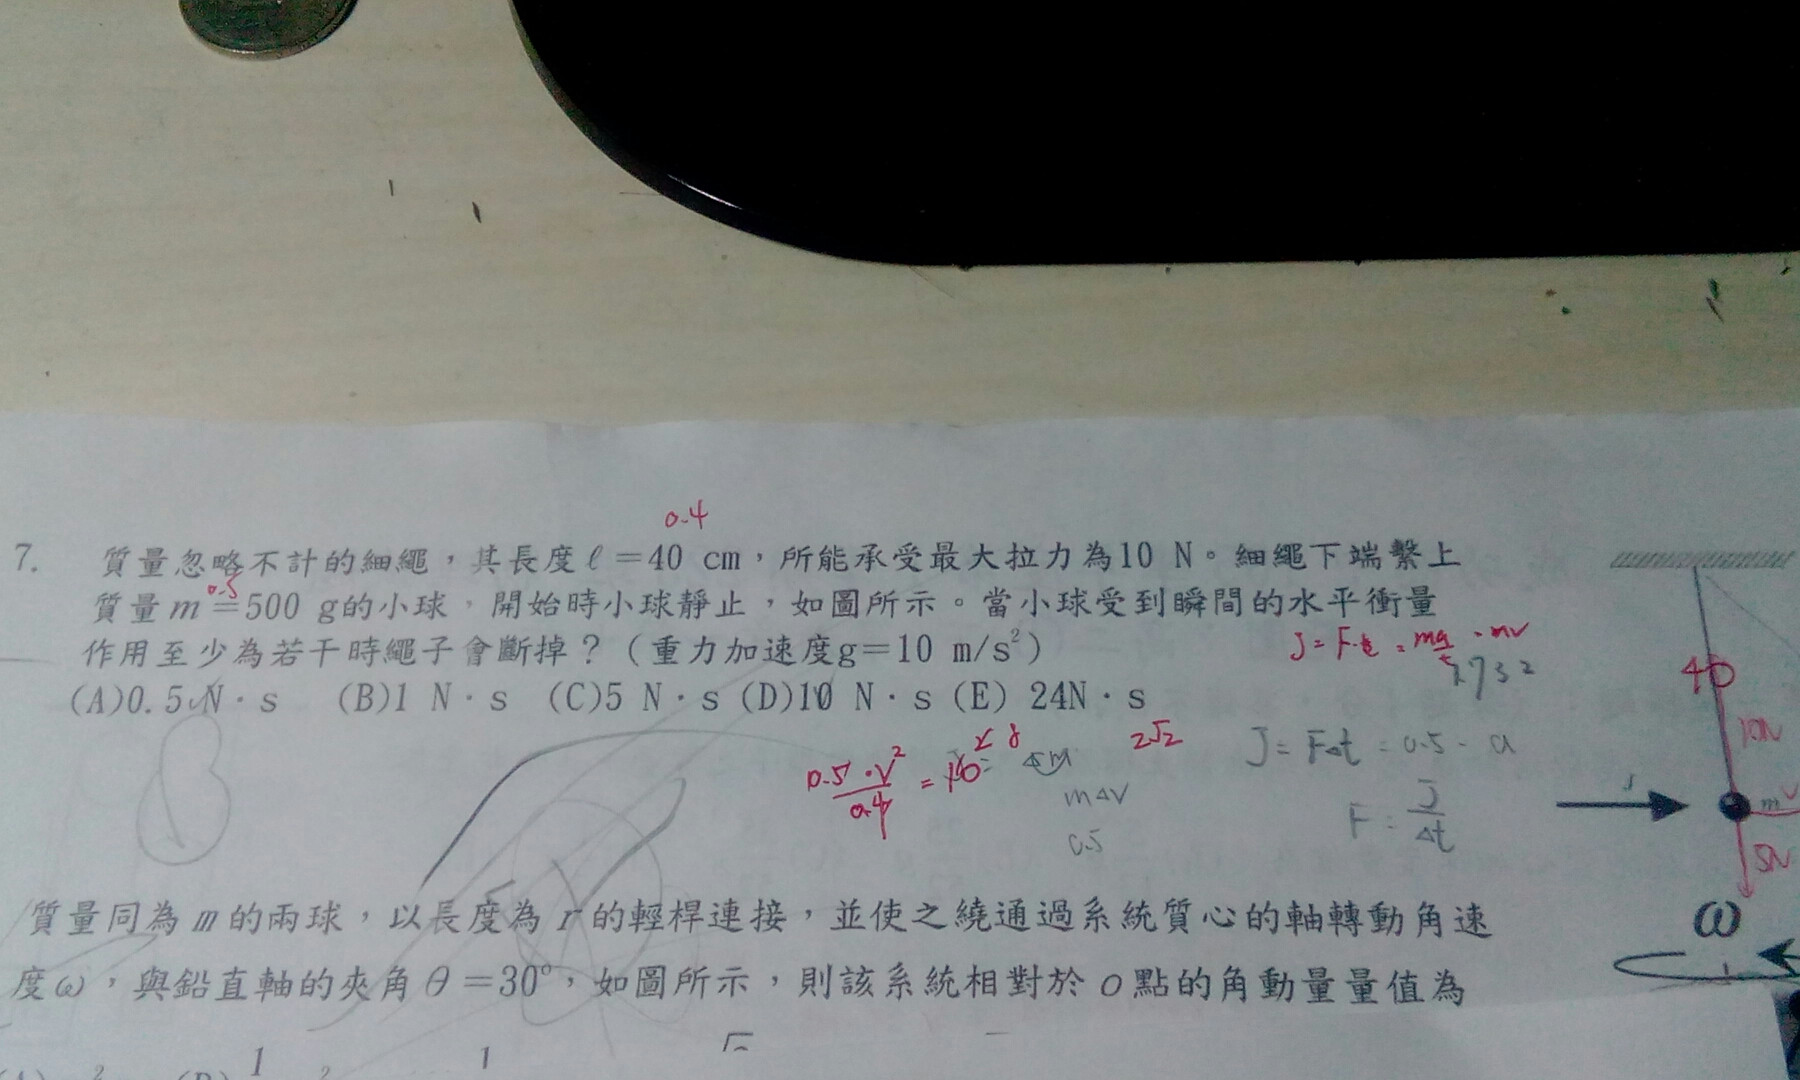 0.4
7. 質量忽略不計的細繩，其長度ℓ＝40 cm，所能承受最大拉力為10 N。細繩下端繫上
0.5
質量m＝500 g的小球，開始時小球靜止，如圖所示。當小球受到瞬間的水平衝量
作用至少為若干時繩子會斷掉？（重力加速度g＝10 m/s²）
J = F·t = ma/t · mv
(A)0.5 N·s (B)1 N·s (C)5 N·s (D)10 N·s (E) 24N·s
40
10N
0.5·v²/0.4 =
2√2
J = F△t = 0.5 · a
m△V
0.5
F = J/△t
J
m
V
5N
質量同為m的兩球，以長度為r的輕桿連接，並使之繞通過系統質心的軸轉動角速
度ω，與鉛直軸的夾角θ＝30°，如圖所示，則該系統相對於o點的角動量量值為
ω